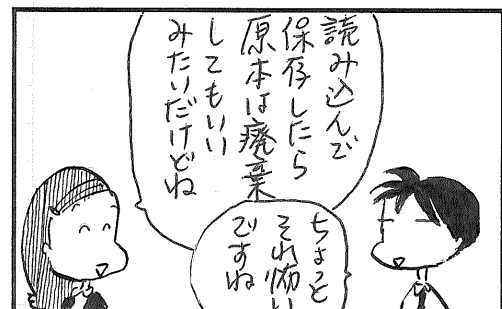 読み込んで
保存したら
原本は廃棄
してもいい
みたいだけどね
ちょっと
それ怖い
ですね